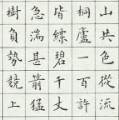 山共色從流
桐廬一百許
皆縹碧千丈
急湍甚箭猛
樹負勢競上